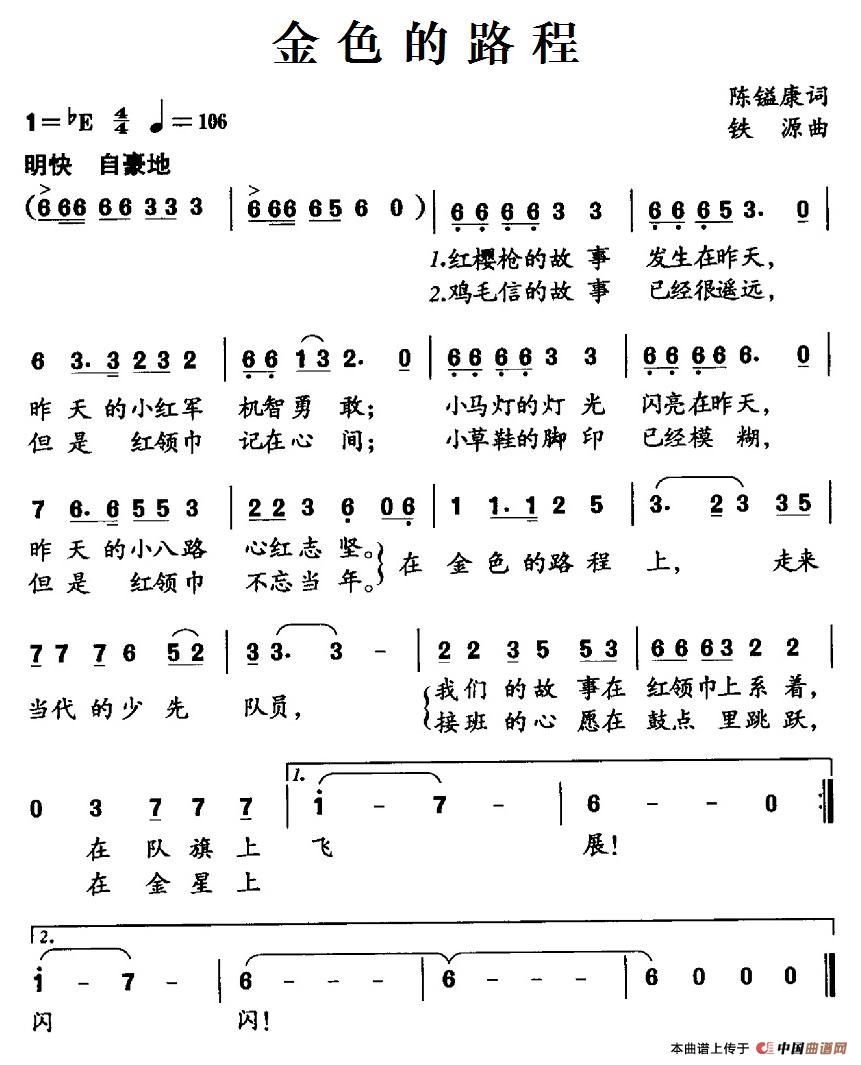 金色的路程
陈镒康词
1=♭E 4/4 ♩=106
铁 源曲
明快 自豪地
(6 66 66 33 3 | 6 66 65 6 0) | 66 66 3 3 | 66 65 3. 0 |
1.红樱枪的故 事 发生在昨天，
2.鸡毛信的故 事 已经很遥远，
6 3. 3 23 2 | 66 13 2. 0 | 66 66 3 3 | 66 66 6. 0 |
昨 天 的小红军 机智勇 敢； 小马灯的灯 光 闪亮在昨天，
但 是 红领巾 记在心 间； 小草鞋的脚 印 已经模 糊，
7 6. 6 55 3 | 22 3 6 06 | 1 1. 1 2 5 | 3. 2 3 35 |
昨 天 的小八路 心红志 坚。 在 金 色 的路 程 上， 走来
但 是 红领巾 不忘当 年。
7 7 7 6 52 | 3 3. 3 - | 2 2 3 5 53 | 66 63 2 2 |
当代 的少 先 队员， 我们 的故 事在 红领巾上系 着，
接班 的心 愿在 鼓点 里跳 跃，
1.
0 3 7 7 7 | 1 - 7 - | 6 - - 0 :|
在 队 旗 上 飞 展！
在 金 星 上
2.
1 - 7 - | 6 - - - | 6 - - - | 6 0 0 0 ‖
闪 闪！
本曲谱上传于 中国曲谱网